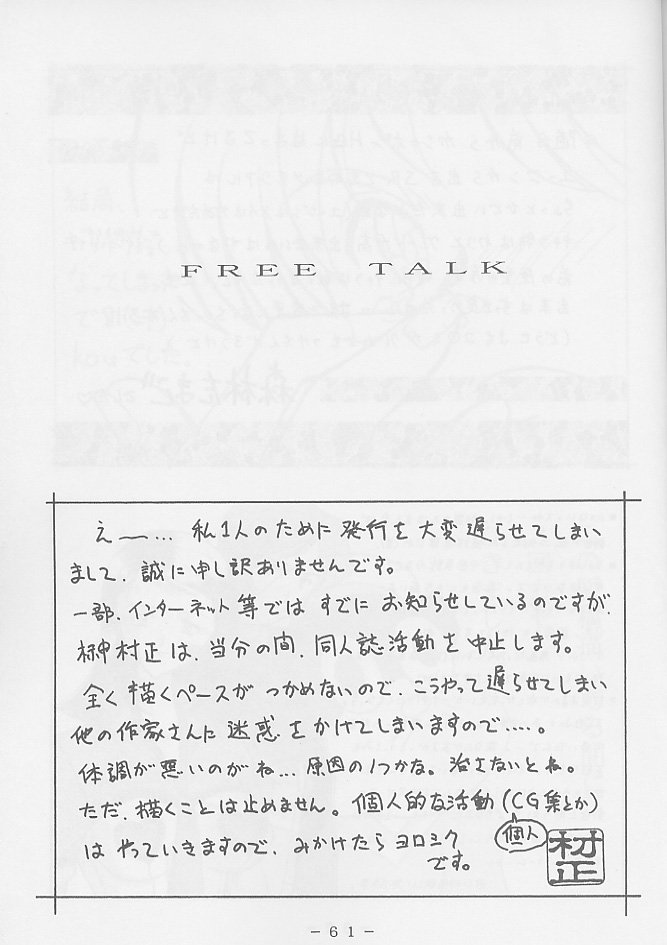 FREE TALK
え〜… 私1人のために発行を大変遅らせてしまい
まして、誠に申し訳ありませんです。
一部、インターネット等ではすでにお知らせしているのですが、
榊村正は、当分の間、同人誌活動を中止します。
全く描くペースがつかめないので、こうやって遅らせてしまい
他の作家さんに迷惑をかけてしまいますので……。
体調が悪いのがね…原因の1つかな。治さないとね。
ただ、描くことは止めません。個人的な活動(CG集とか)
個人
はやっていきますので、みかけたらヨロシク
です。
村正
-61-